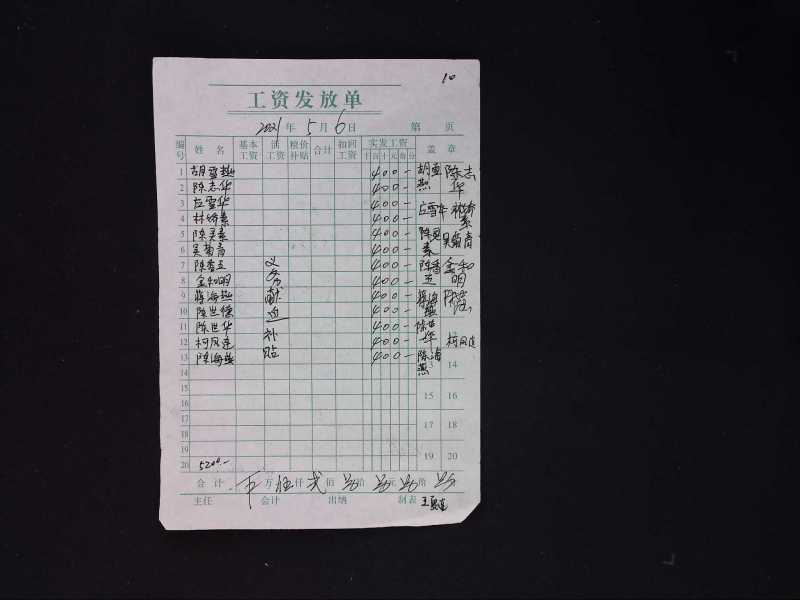 10
工资发放单
2021年5月6日 第 页
编号 姓名 基本工资 浮动工资 粮价补贴 合计 扣回工资 实发工资 盖章
千百十元角分
1 胡雪燕 400- 胡雪燕 陈志华
2 陈志华 400-
3 左雪华 400- 左雪华 林娇素
4 林娇素 400-
5 陈灵素 400- 陈灵素 吴菊青
6 吴菊青 400-
7 陈香玉 400- 陈香玉 金和明
8 金和明 400-
9 蒋海燕 400- 蒋海燕
10 陈世德 400-
11 陈世华 400- 陈世华
12 柯凤连 400- 柯凤连
13 陈海燕 400- 陈海燕
义务献血补贴
14 14
15 15 16
16
17 17 18
18
19 19 20
20 5200.-
合计 万伍仟贰佰 拾 元 角
主任 会计 出纳 制表